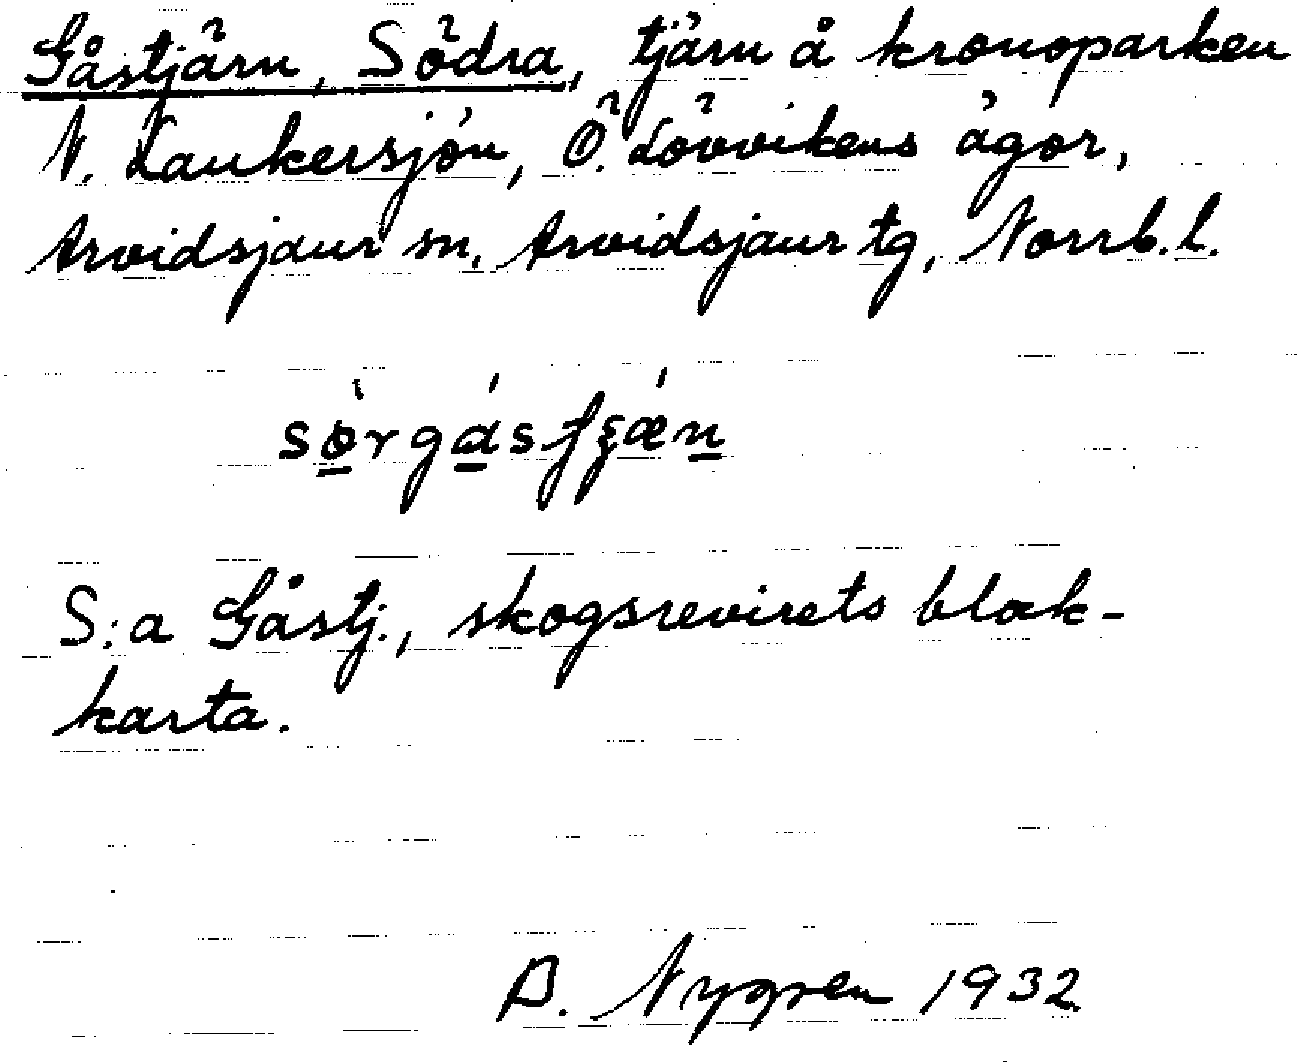 Gåstjärn, Södra, tjärn å kronoparken
N. Laukersjön, Ö. Lövvikens ägor,
Arvidsjaur sn, Arvidsjaur tg, Norrb. l.
S:a Gåstj., skogsrevirets blak-
karta.
A. Nygren 1932